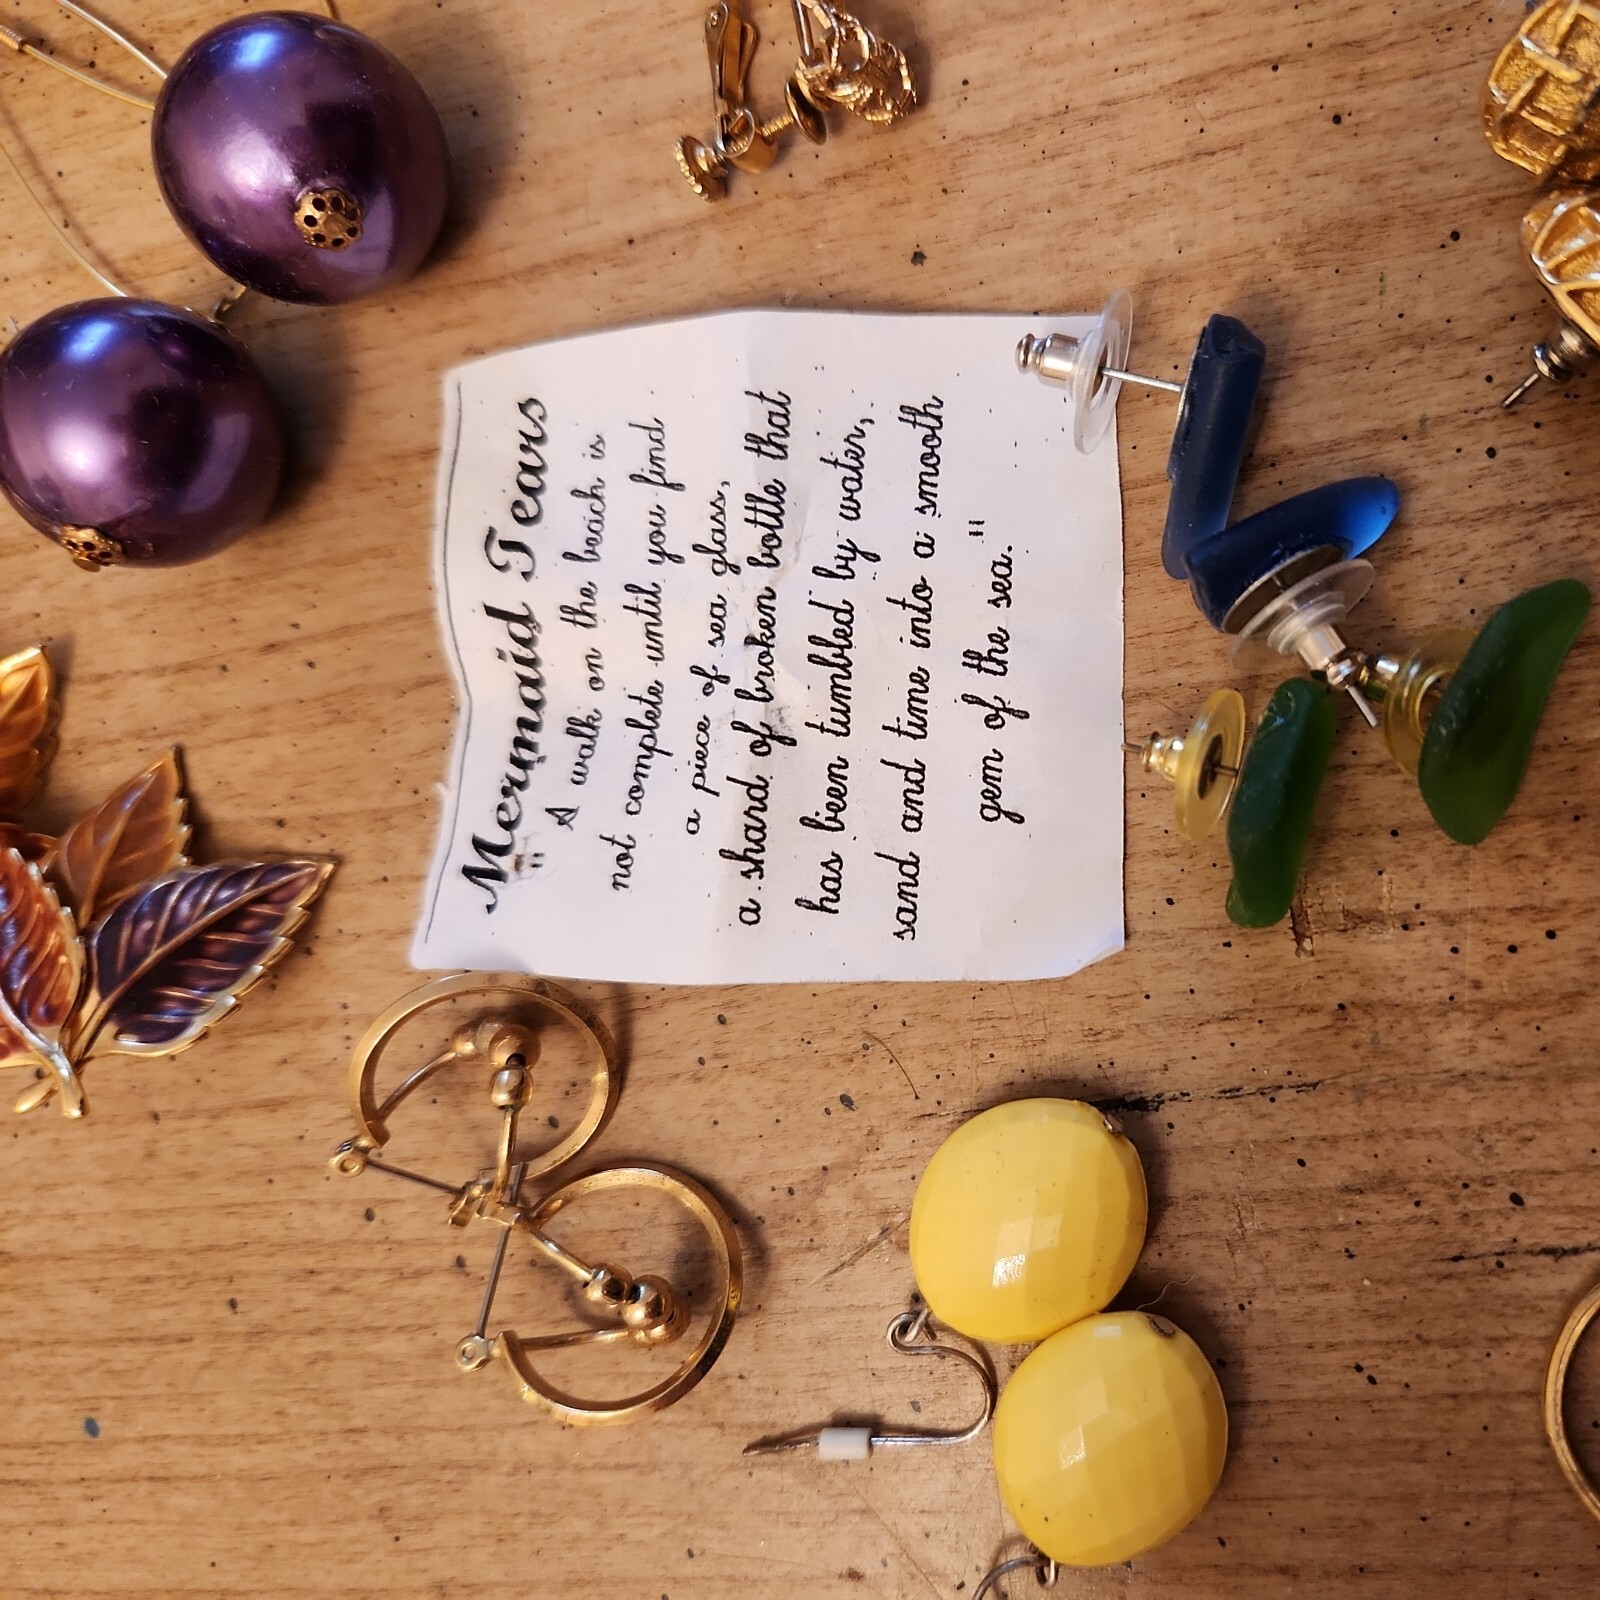 Mermaid Tears
"A walk on the beach is
not complete until you find
a piece of sea glass,
a shard of broken bottle that
has been tumbled by water,
sand and time into a smooth
gem of the sea."